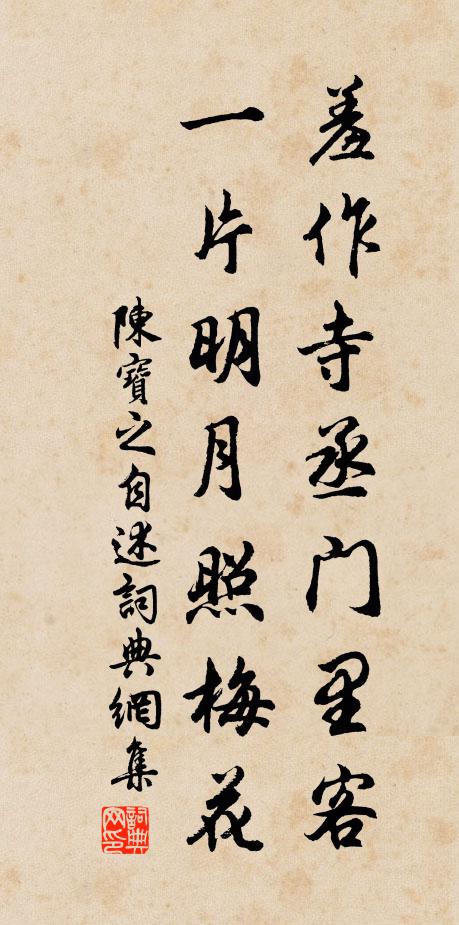 羞作寺丞門里客
一片明月照梅花
陳寶之自述詞典網集
詞典網印